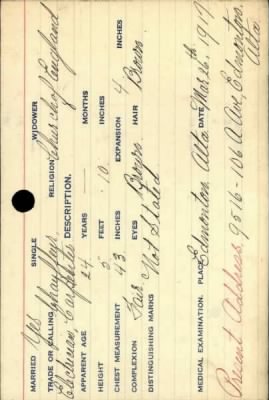 MARRIED Yes SINGLE WIDOWER
TRADE OR CALLING Chauffeur RELIGION Church of England
Carpenter DESCRIPTION.
APPARENT AGE 24 YEARS MONTHS
HEIGHT 5 FEET 10 INCHES
CHEST MEASUREMENT 43 INCHES EXPANSION 4 INCHES
COMPLEXION Fair EYES HAIR Brown
DISTINGUISHING MARKS Not Stated
MEDICAL EXAMINATION. PLACE Edmonton Alta DATE Mar 26th 1917
Present Address, 9516-106 A Ave, Edmonton,
Alta